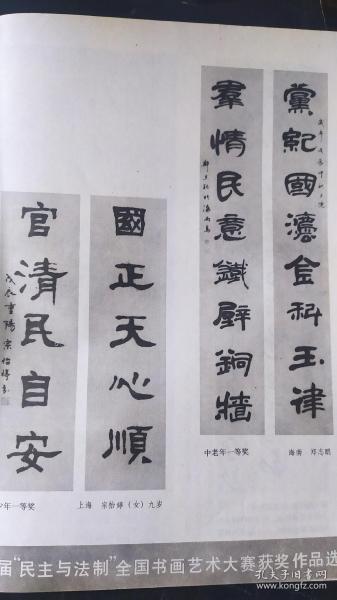 黨紀國灋金科玉律
羣情民意鐵壁銅牆
中老年一等奖 海南 郑志鹏
國正天心順
官清民自安
戊辰重陽 宗怡婷书
少年一等奖 上海 宗怡婷（女）九岁
届“民主与法制”全国书画艺术大赛获奖作品选
孔夫子旧书网